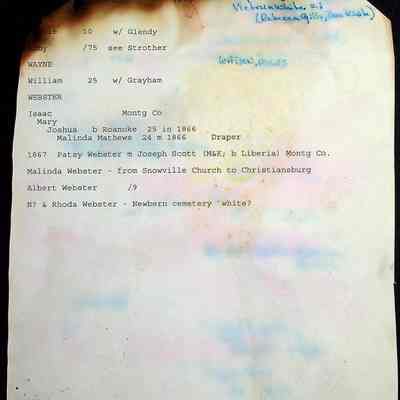 10 w/ Glendy
/75 see Strother
WAYNE
William 25 w/ Grayham
WEBSTER
Isaac Montg Co
Mary
Joshua b Roanoke 25 in 1866
Malinda Mathews 24 m 1866 Draper
1867 Patsy Webster m Joseph Scott (M&K; b Liberia) Montg Co.
Malinda Webster - from Snowville Church to Christiansburg
Albert Webster /9
N? & Rhoda Webster - Newbern cemetery 'white?